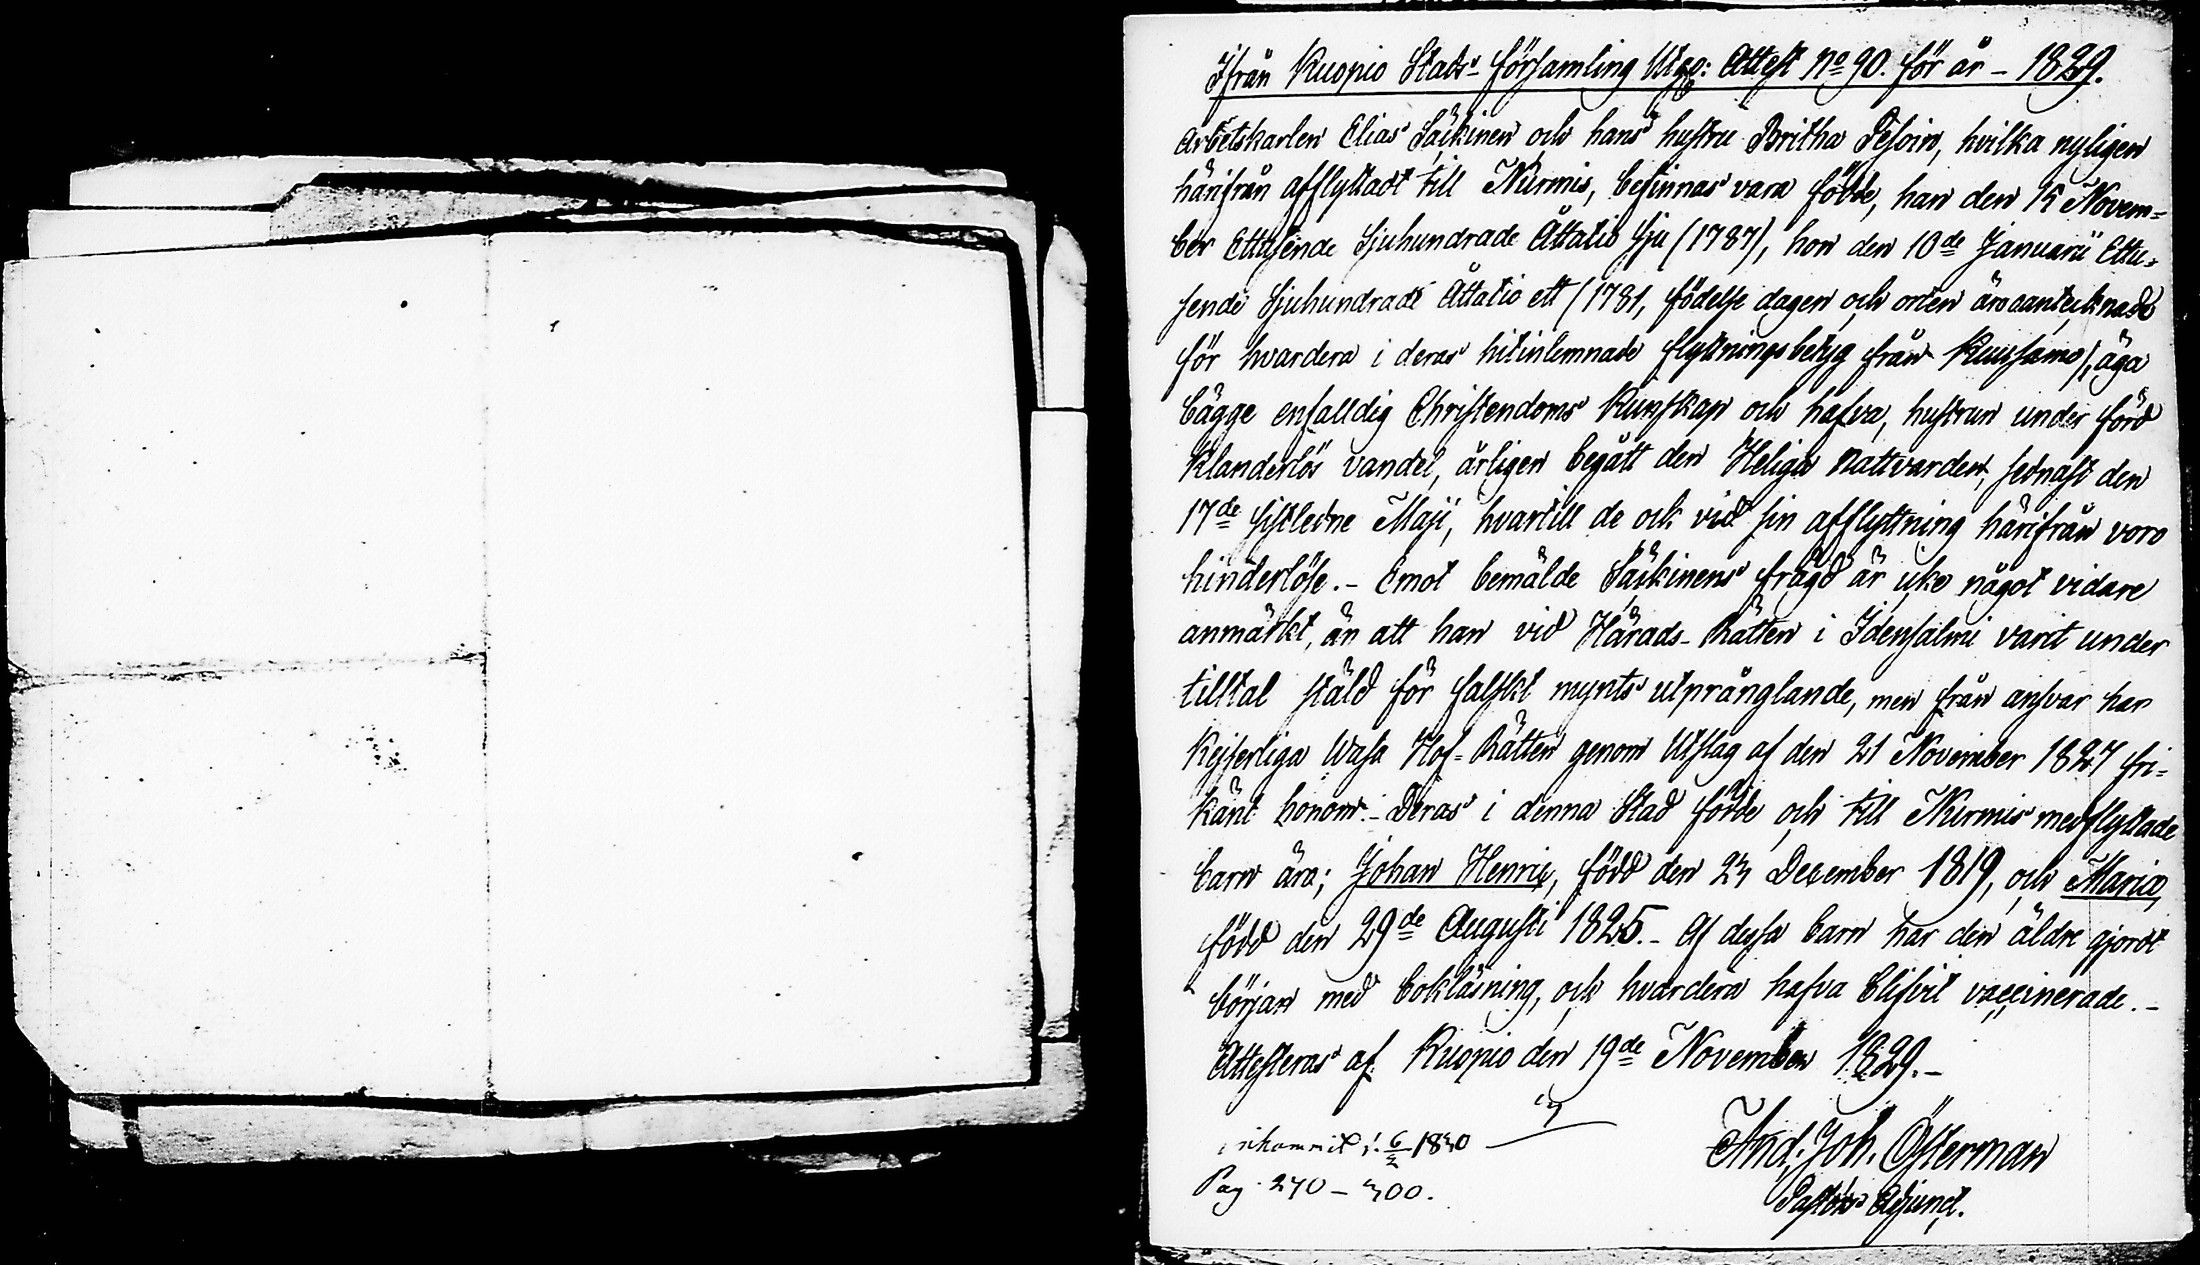 Ifrån Kuopio Stads-församling Utgo: Attest No 90. för år - 1829.
Arbetskarlen Elias Säikinen och hans hustru Britha Pesoin, hvilka nyligen
härifrån afflyttadt till Nurmis, befinnas vara födde, han den 15 Novem-
ber Ettusende Sjuhundrade Åttatio Sju (1787), hon den 10de Januarii Ettu-
sende Sjuhundrade Åttatio ett (1781, födelse dagen och orten äro antecknade
för hvardera i deras hitinlemnade flyttningsbetyg från Kuusamo), äga
bägge enfalldig Christendoms Kunskap och hafva, hustrun under förd
klanderlös vandel, årligen begått den Heliga Nattvarden, sednast den
17de sistledne Maji, hvartill de ock vid sin afflyttning härifrån voro
hinderlöse. - Emot bemälde Säikinens frägd är icke något vidare
anmärkt, än att han vid Härads-Rätten i Idensalmi varit under
tilltal stäld för falskt mynts utprånglande, men från ansvar har
Kejserliga Wasa Hof-Rätten genom Utslag af den 21 November 1827 fri-
känt honom. - Deras i denna Stad födde och till Nurmis medflyttade
barn äro; Johan Henric, född den 23 December 1819, och Maria,
född den 29de Augusti 1825. - Af dessa barn har den äldre gjordt
början med bokläsning, och hvardera hafva blifvit vaccinerade. -
Attesteras af Kuopio den 19de November 1829. -
And. Joh. Österman
Pastors Adjunct.
inkommit d. 6/2 1830
Pag. 270 - 300.